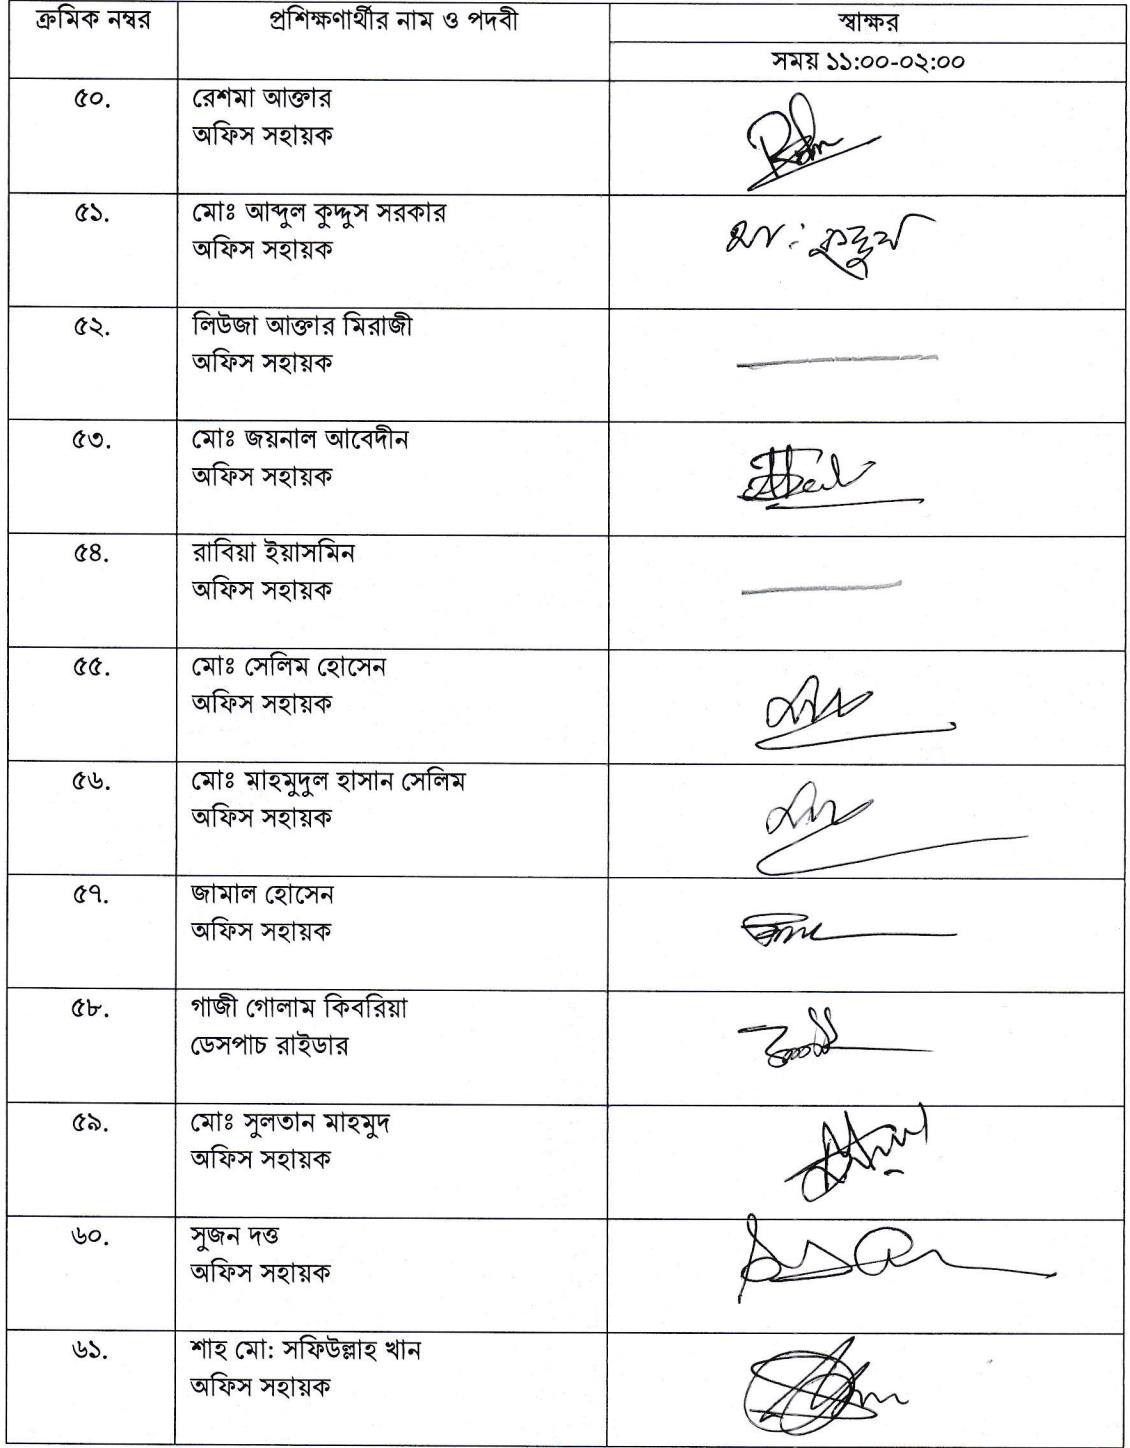 ক্রমিক নম্বর প্রশিক্ষণার্থীর নাম ও পদবী স্বাক্ষর
সময় ১১:০০-০২:০০
৫০. রেশমা আক্তার
অফিস সহায়ক
৫১. মোঃ আব্দুল কুদ্দুস সরকার
অফিস সহায়ক
৫২. লিউজা আক্তার মিরাজী
অফিস সহায়ক
৫৩. মোঃ জয়নাল আবেদীন
অফিস সহায়ক
৫৪. রাবিয়া ইয়াসমিন
অফিস সহায়ক
৫৫. মোঃ সেলিম হোসেন
অফিস সহায়ক
৫৬. মোঃ মাহমুদুল হাসান সেলিম
অফিস সহায়ক
৫৭. জামাল হোসেন
অফিস সহায়ক
৫৮. গাজী গোলাম কিবরিয়া
ডেসপাচ রাইডার
৫৯. মোঃ সুলতান মাহমুদ
অফিস সহায়ক
৬০. সুজন দত্ত
অফিস সহায়ক
৬১. শাহ মো: সফিউল্লাহ খান
অফিস সহায়ক